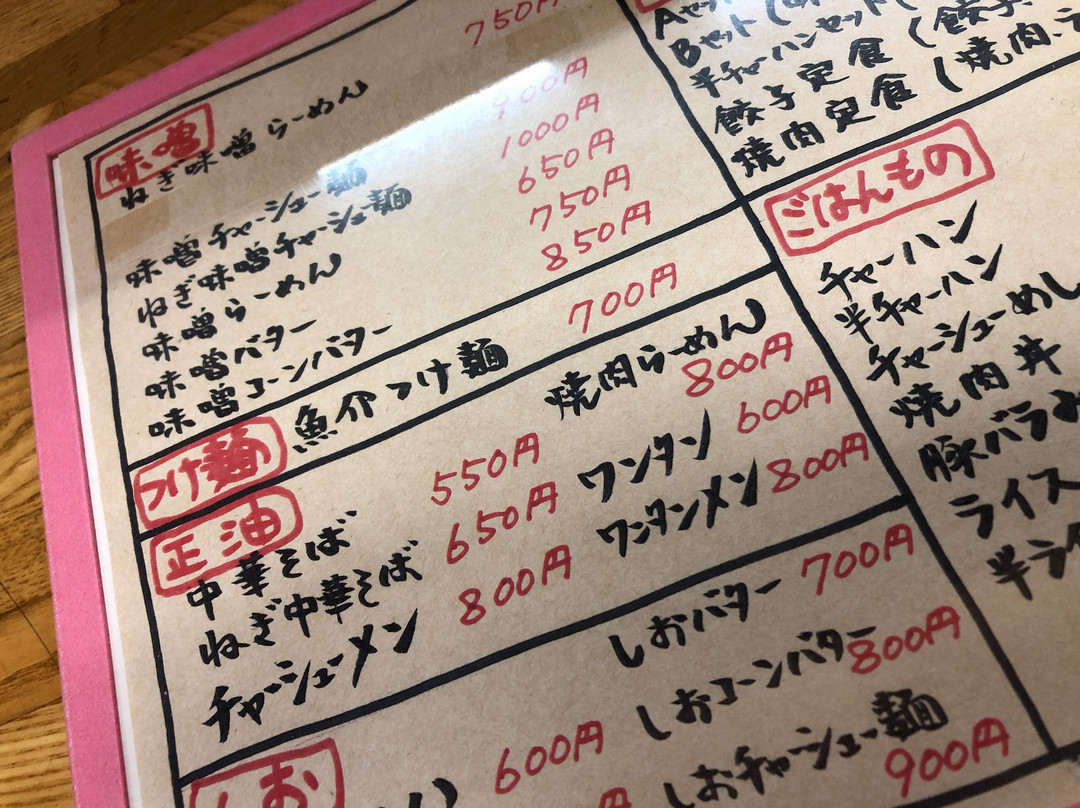 味噌
ねぎ味噌らーめん 750円
味噌チャーシュー麺 900円
ねぎ味噌チャーシュー麺 1000円
味噌らーめん 650円
味噌バター 750円
味噌コーンバター 850円
つけ麺
魚介つけ麺 700円
正油
中華そば 550円
ねぎ中華そば 650円
チャーシューメン 800円
焼肉らーめん 800円
ワンタン 600円
ワンタンメン 800円
しお
600円
しおバター 700円
しおコーンバター 800円
しおチャーシュー麺 900円
Aセット
Bセット
半チャーハンセット(
餃子定食(餃子
焼肉定食(焼肉、
ごはんもの
チャーハン
半チャーハン
チャーシューめし
焼肉丼
豚バラ
ライス
半ライ